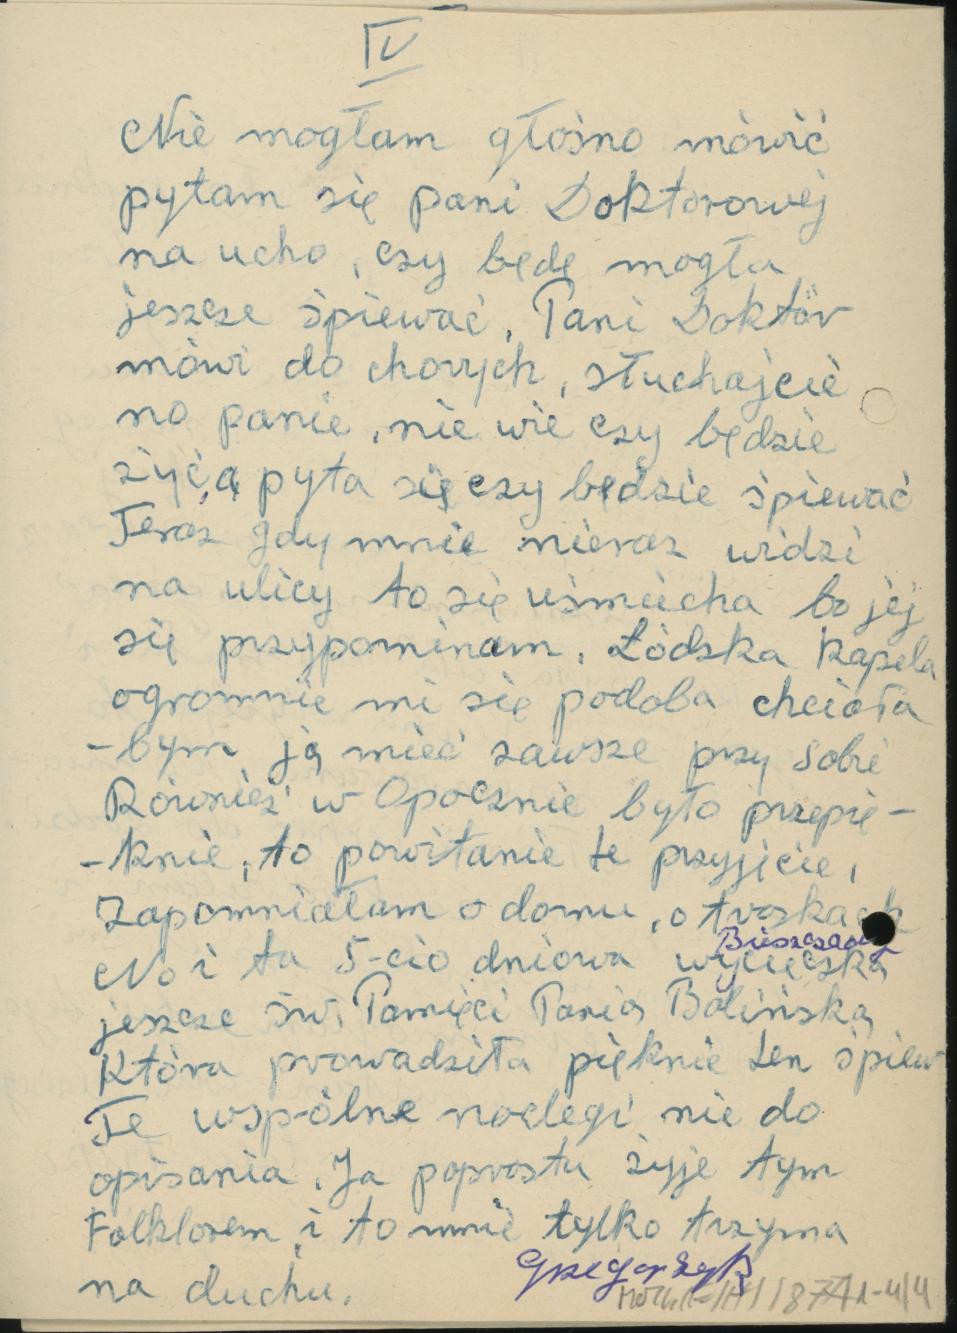 IV
Nie mogłam głośno mówić
pytam się pani Doktorowej
na ucho, czy będę mogła
jeszcze śpiewać, Pani Doktór
mówi do chorych, słuchajcie
no panie, nie wie czy będzie
żyć, a pyta się czy będzie śpiewać
Teraz gdy mnie nieraz widzi
na ulicy to się uśmiecha bo jej
się przypominam, Łódzka Kapela
ogromnie mi się podoba chciała
-bym ją mieć zawsze przy sobie
Również w Opocznie było przepię-
-knie, to powitanie te przyjęcie,
Zapomniałam o domu, o troskach
Bieszczady
No i ta 5-cio dniowa wycieczka
jeszcze św. Pamięci Pania Bolińska
Która prowadziła pięknie ten śpiew
Te wspólne noclegi nie do
opisania. Ja poprostu żyje tym
Folklorem, i to mnie tylko trzyma
na duchu.
Grzegorzyk